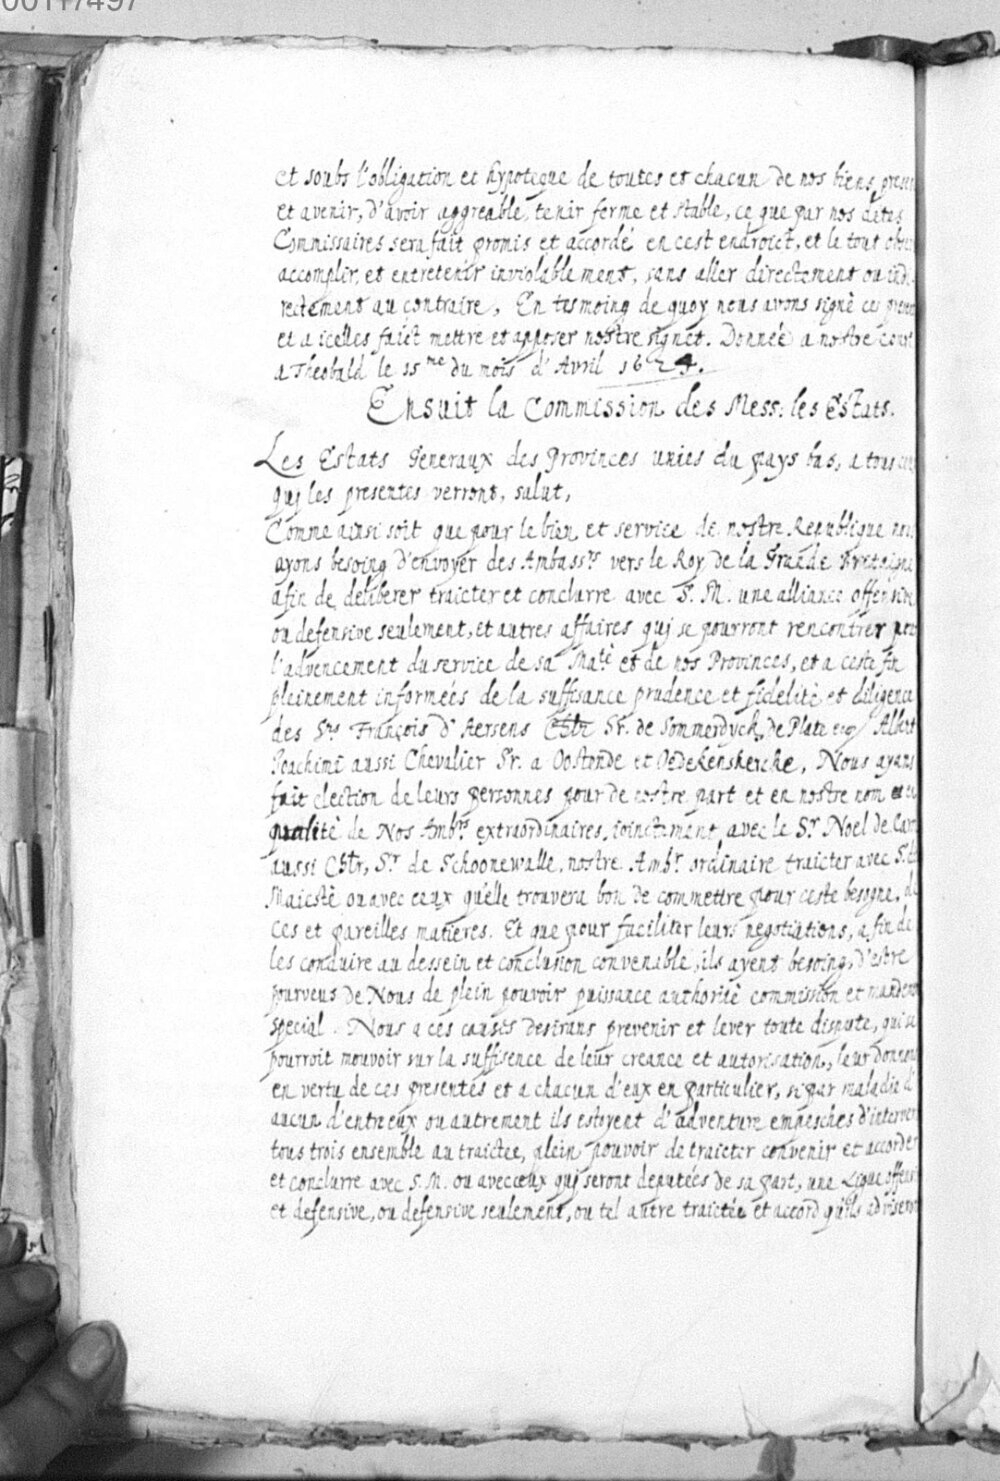 et soubs l'obligation et hypoteque de toutes et chacun de nos biens presen
et avenir, d'avoir aggreable, tenir ferme et stable, ce que par nos dites
Commissaires sera fait promis et accordé en cest endroict, et le tout
accomplir, et entretenir inviolablement, sans aller directement ou indi-
rectement au contraire, En tesmoing de quoy nous avons signè ces presen
et a icelles faict mettre et apposer nostre signet. Donnée a nostre court
a Theobald le 15me du mois d'Avril 1624.
Ensuit la Commission des Mess: les Estats.
Les Estats Generaux des Provinces unies du pays bas, a tous ceu
qui les presentes verront, salut,
Comme ainsi soit que pour le bien et service de nostre Republique nou
ayons besoing d'envoyer des Ambassrs vers le Roy de la Grande Bretaigne
afin de deliberer traicter et conclurre avec S. M. une alliance offensive
ou defensive seulement, et autres affaires qui se pourront rencontrer pou
l'advencement du service de sa Maté et de nos Provinces, et a ceste fin
pleinement informées de la suffisance prudence et fidelité et diligence
des Srs François d'Aersens Chlr Sr. de Sommerdyck, de Plate Albert
Joachimi aussi Chevalier Sr. a Oostende et Oedekenskercke, Nous ayans
fait election de leurs personnes pour de nostre part et en nostre nom et en
qualité de Nos Ambrs extraordinaires, joinctement avec le Sr Noel de Caro
aussi Chlr, Sr de Schoonewalle, nostre Ambr ordinaire traicter avec Sa
Maiesté ou avec ceux qu'elle trouvera bon de commettre pour ceste besogne, de
ces et pareilles matieres. Et que pour faciliter leurs negotiations, afin de
les conduire au dessein et conclusion convenable, ils ayent besoing, d'estre
pourveus de Nous de plein pouvoir puissance authorité commission et mandem
special. Nous a ces causes desirans prevenir et lever toute dispute, qui se
pourroit mouvoir sur la suffisence de leur creance et autorisation, leur donnon
en vertu de ces presentes et a chacun d'eux en particulier, si par maladie d'
aucun d'entreux ou autrement ils estoyent d'adventure empesches d'interven
tous trois ensemble au traictée, plein pouvoir de traicter convenir et accorder
et conclurre avec S. M. ou avec ceux qui seront deputées de sa part, une Ligue offens
et defensive, ou defensive seulement, ou tel autre traictée et accord qu'ils adviseron